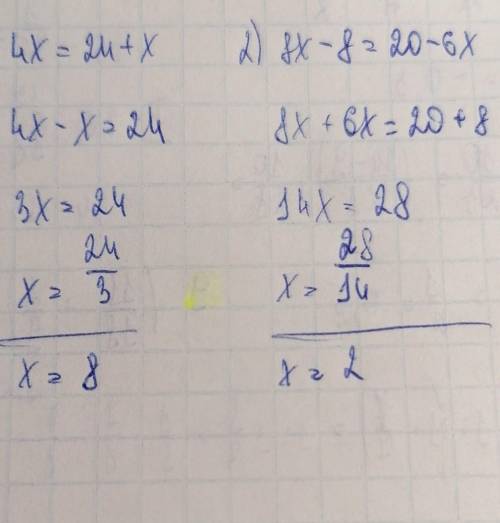 4x = 24 + x
4x - x = 24
3x = 24
x = 24/3
x = 8
2) 8x - 8 = 20 - 6x
8x + 6x = 20 + 8
14x = 28
x = 28/14
x = 2